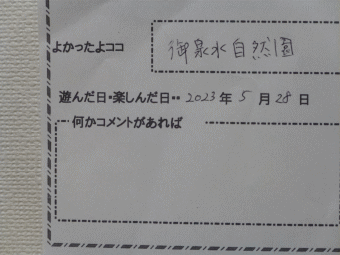 よかったよココ 御泉水自然園
遊んだ日・楽しんだ日・・ 2023 年 5 月 28 日
何かコメントがあれば